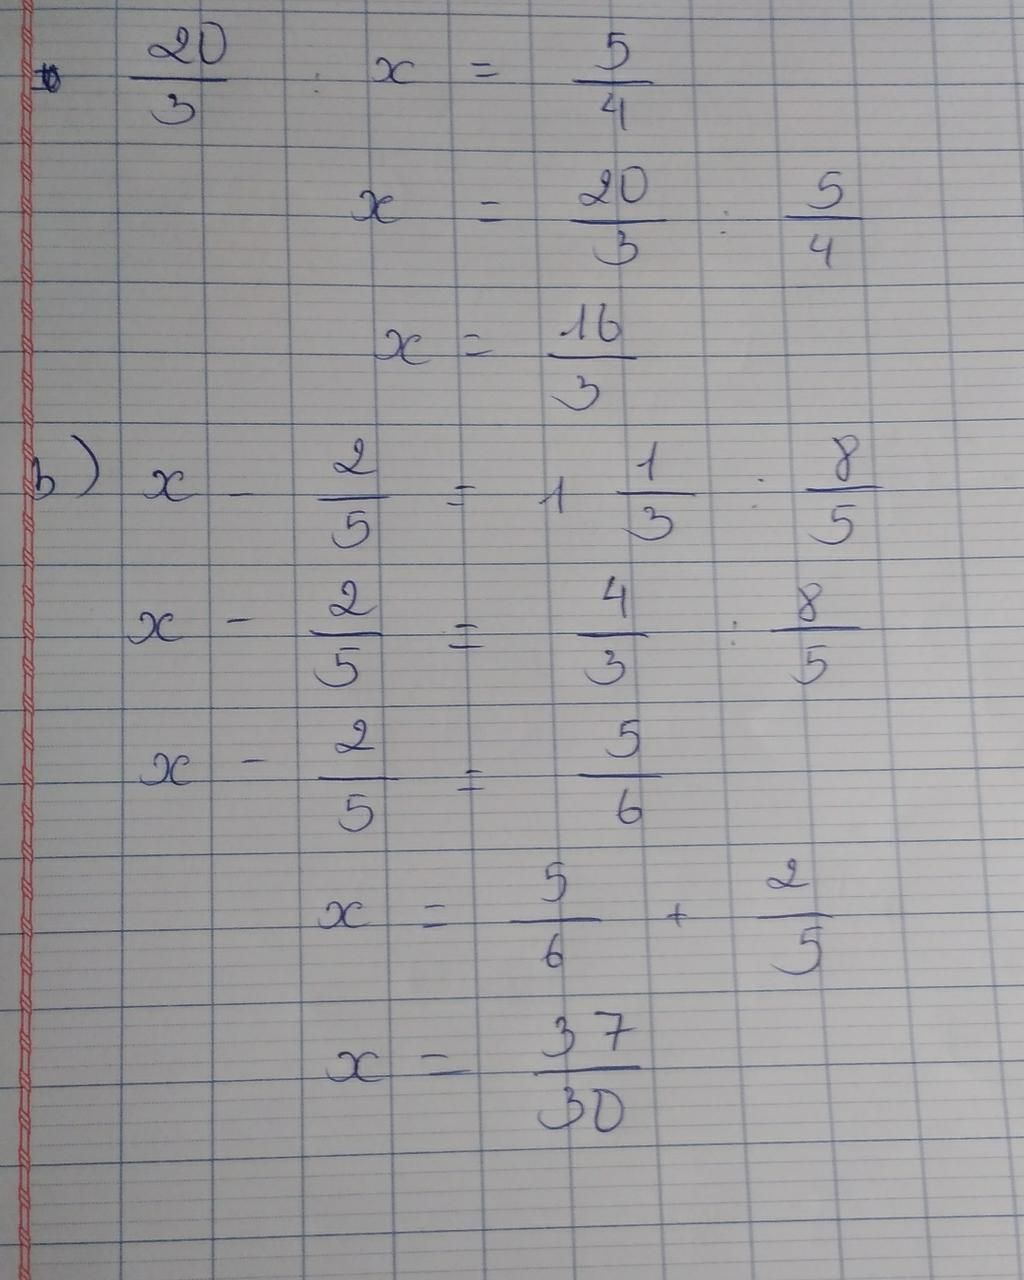 20/3 : x = 5/4
x = 20/3 : 5/4
x = 16/3
b) x - 2/5 = 1 1/3 : 8/5
x - 2/5 = 4/3 : 8/5
x - 2/5 = 5/6
x = 5/6 + 2/5
x = 37/30